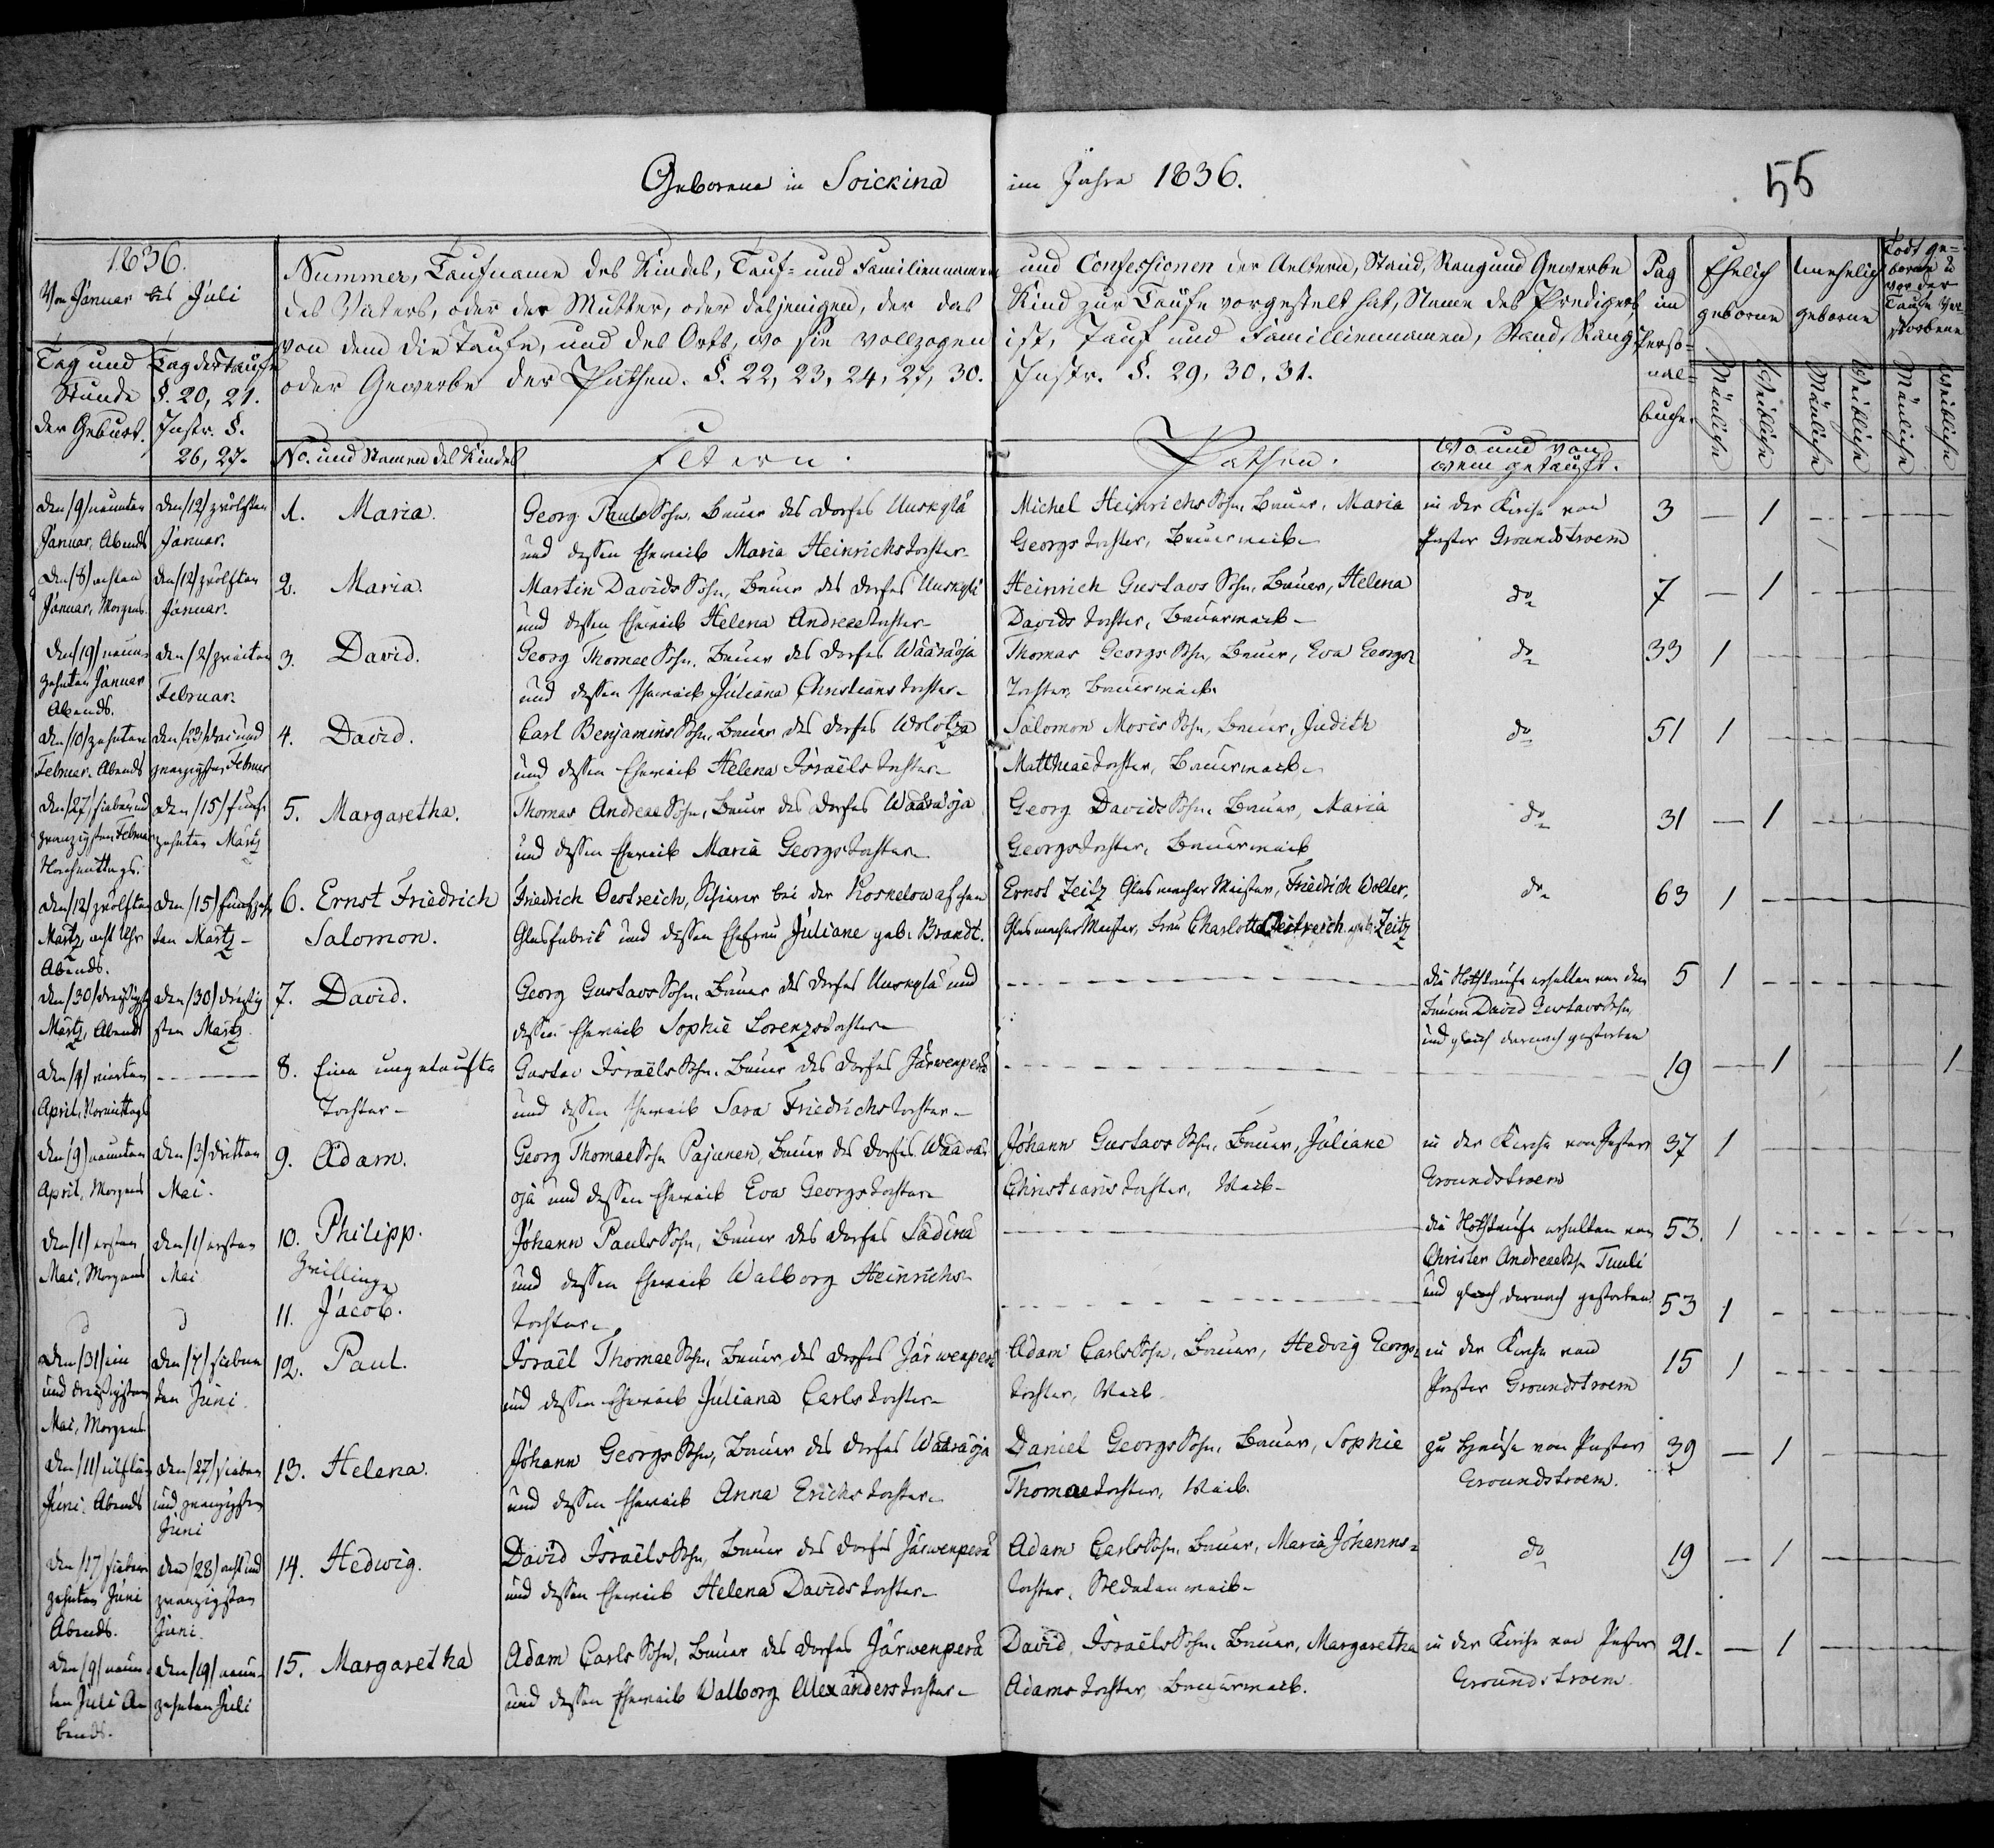 Geborene in Soickina im Jahre 1836.
55
1836.
Von Januar bis Juli
Tag und Stunde der Geburt.
Tag der Taufe §. 20, 21. Instr. §. 26, 27.
Nummer, Taufname des Kindes, Tauf- und Familiennamen und Confessionen der Aeltern, Stand, Rang und Gewerbe
des Vaters, oder der Mutter, oder desjenigen, der das Kind zur Taufe vorgestelt hat, Namen des Predigers
von dem die Taufe, und des Orts, wo sie vollzogen ist, Tauf und Familiennamen, Stand, Rang
oder Gewerbe der Pathen. §. 22, 23, 24, 27, 30. Instr. §. 29. 30. 31.
No. und Namen des Kindes
Eltern.
Pathen.
Wo und von wem getauft.
Pag im Perso=nal=buche.
Ehelich geborne
unehelich geborne
Todt ge=borene & vor der Taufe verstorbene
Mänliche
Weibliche
Mänliche
Weibliche
Mänliche
Weibliche
den /9/ neunten
Januar, Abends
den /12/ zwölften
Januar.
1. Maria.
Georg Pauls Sohn, Bauer des Dorfes Uuskylä
und dessen Eheweib Maria Heinrichs tochter
Michel Heinrichs Sohn, Bauer, Maria
Georgs tochter, Bauerweib
in der Kirche von
Pastor Groundstroem
3 — 1
den /8/ achten
Januar, Morgens.
den /12/ zwölften
Januar.
2. Maria.
Martin Davids Sohn, Bauer des Dorfes Uuskylä
und dessen Eheweib Helena Andreae tochter
Heinrich Gustavs Sohn, Bauer, Helena
Davids tochter, Bauerweib
do
7 — 1
den /19/ neun-
zehnten Januar
Abends.
den /2/ zweiten
Februar.
3. David.
Georg Thomae Sohn, Bauer des Dorfes Wääräoja
und dessen Eheweib Juliana Christians tochter
Thomas Georgs Sohn, Bauer, Eva Georgs
tochter, Bauerweib
do
33 1
den /10/ zehnten
Februar. Abends
den /23/ drei und
zwanzigsten Februar
4. David.
Carl Benjamins Sohn, Bauer des Dorfes Wolotza
und dessen Eheweib Helena Israëls tochter
Salomon Mosis Sohn, Bauer, Judith
Matthiae tochter, Bauerweib
do
51 1
den /27/ sieben und
zwanzigsten Februar
Nachmittags.
den /15/ funf-
zehnten Martz
5. Margaretha.
Thomas Andreae Sohn, Bauer des Dorfes Wääräoja
und dessen Eheweib Maria Georgs tochter
Georg Davids Sohn, Bauer, Maria
Georgs tochter, Bauerweib
do
31 — 1
den /12/ zwölften
Martz acht Uhr
Abends.
den /15/ funfzehn
ten Martz
6. Ernst Friedrich
Salomon.
Friedrich Oestreich, Schürer bei der Koskolowaschen
Glasfabrik und dessen Ehefrau Juliane geb. Brandt.
Ernst Zeitz Glasmacher Meister, Friedrich Wolter,
Glasmacher Meister, Frau Charlotta Oestreich geb. Zeitz
do
63 1
den /30/ dreissigst
Martz, Abends
den /30/ dreissig
sten Martz
7. David.
Georg Gustavs Sohn, Bauer des Dorfes Uuskylä und
dessen Eheweib Sophie Lorenzs tochter
die Nothtaufe erhalten von dem
Bauern David Gustavs Sohn,
und gleich darnach gestorben
5 1
den /4/ vierten
April, Vormittags
8. Eine ungetaufte
Tochter
Gustav Israëls Sohn, Bauer des Dorfes Järwenperä
und dessen Eheweib Sara Friedrichs tochter
19 — 1 1
den /9/ neunten
April, Morgens
den /3/ dritten
Mai.
9. Adam.
Georg Thomae Sohn Pajunen, Bauer des Dorfes Wäärä
oja und dessen Eheweib Eva Georgs tochter
Johann Gustavs Sohn, Bauer, Juliane
Christians tochter, Weib
in der Kirche von Pastor
Groundstroem
37 1
den /1/ ersten
Mai, Morgens
den /1/ ersten
Mai
10. Philipp.
Zwillinge
11. Jacob.
Johann Pauls Sohn, Bauer des Dorfes Sädinä
und dessen Eheweib Walborg Heinrichs
tochter
die Nothtaufe erhalten von
Christer Andreae Sohn Tuuli
und gleich darnach gestorben
53. 1
53 1
den /31/ ein
und dreissigsten
Mai, Morgens
den /7/ sieben
ten Juni
12. Paul.
Israël Thomae Sohn, Bauer des Dorfes Järwenperä
und dessen Eheweib Juliana Carls tochter
Adam Carls Sohn, Bauer, Hedvig Georgs
tochter, Weib
in der Kirche von
Pastor Groundstroem
15 1
den /11/ eilften
Juni. Abends
den /27/ sieben
und zwanzigsten
Juni
13. Helena.
Johann Georgs Sohn, Bauer des Dorfes Wääräoja
und dessen Eheweib Anna Erichs tochter
Daniel Georgs Sohn, Bauer, Sophie
Thomae tochter, Weib.
zu Hause von Pastor
Groundstroem.
39 — 1
den /17/ sieben
zehnten Juni
Abends.
den /28/ acht und
zwanzigsten
Juni.
14. Hedwig.
David Israëls Sohn, Bauer des Dorfes Järwenperä
und dessen Eheweib Helena Davids tochter
Adam Carls Sohn, Bauer, Maria Johanns=
tochter, Soldatenweib
do
19 — 1
den /9/ neun
ten Juli A
bends.
den /19/ neun-
zehnten Juli
15. Margaretha
Adam Carls Sohn, Bauer des Dorfes Järwenperä
und dessen Eheweib Walborg Alexanders tochter
David Israëls Sohn, Bauer, Margaretha
Adams tochter, Bauerweib.
in der Kirche von Pastor
Groundstroem
21. — 1